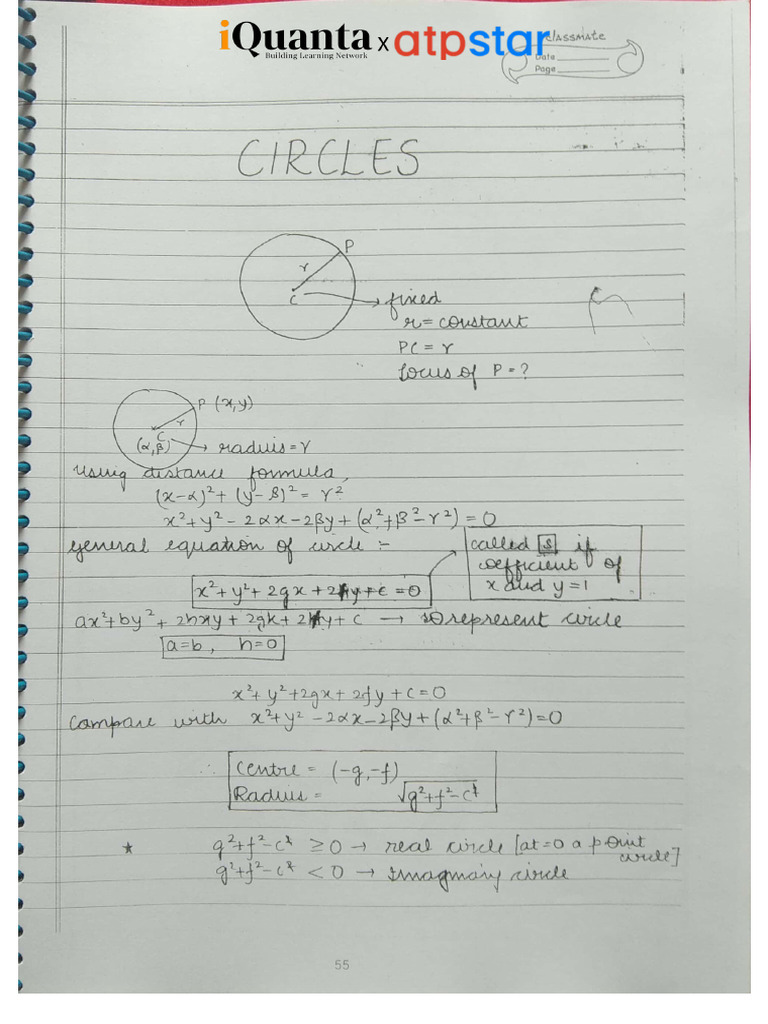 iQuanta x atpstar
Building Learning Network
CLASSMATE
Date
Page
CIRCLES
P
r
C → fixed
r = constant
PC = r
Locus of P = ?
P (x,y)
r
C
(α,β) → raduis = r
Using distance formula,
(x-α)² + (y-β)² = r²
x² + y² - 2αx - 2βy + (α² + β² - r²) = 0
general equation of circle :-
called S if
coefficient of
x and y = 1
x² + y² + 2gx + 2fy + c = 0
ax² + by² + 2hxy + 2gx + 2fy + c → to represent circle
a = b, h = 0
x² + y² + 2gx + 2fy + c = 0
Compare with x² + y² - 2αx - 2βy + (α² + β² - r²) = 0
∴ Centre = (-g, -f)
Raduis = √g² + f² - c
* g² + f² - c ≥ 0 → real circle [at = 0 a point
circle]
g² + f² - c < 0 → Imaginary circle
55